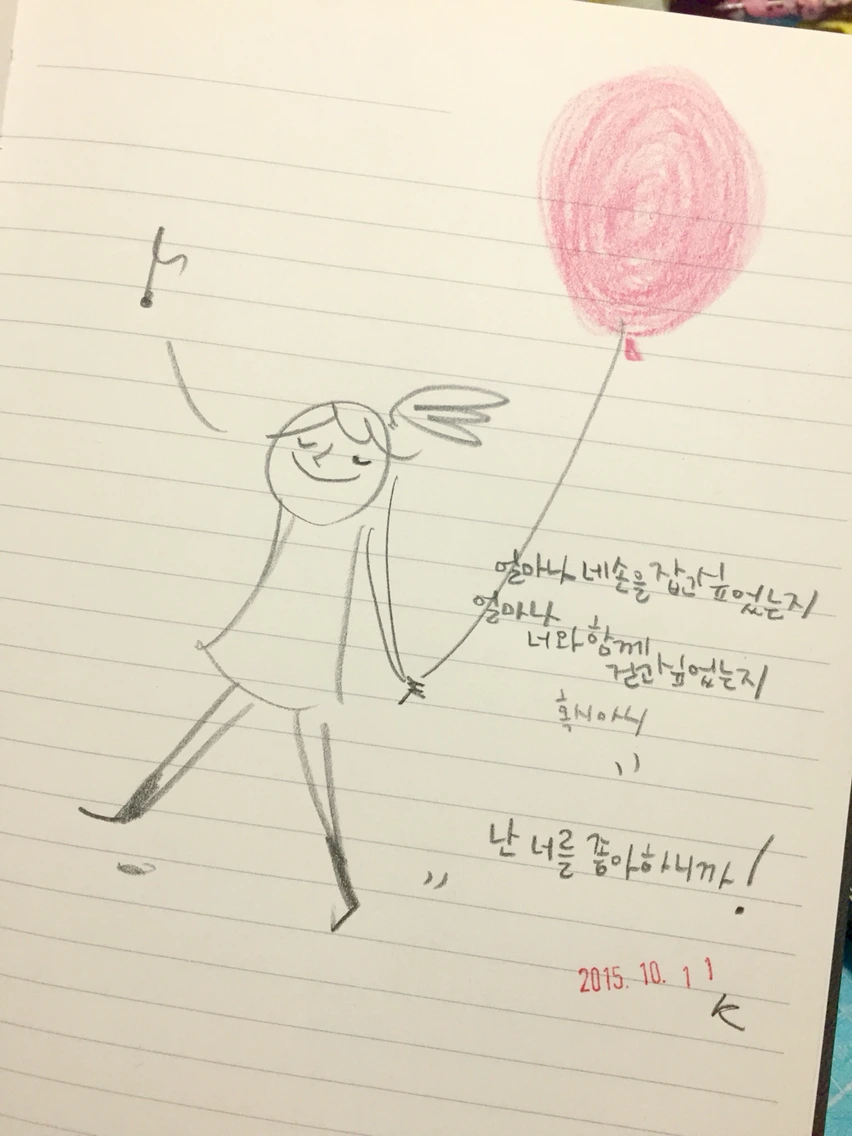 얼마나 네손을 잡고싶었는지
얼마나
너와 함께
걷고싶었는지
혹시아니
난 너를 좋아하니까!
2015. 10. 11
K